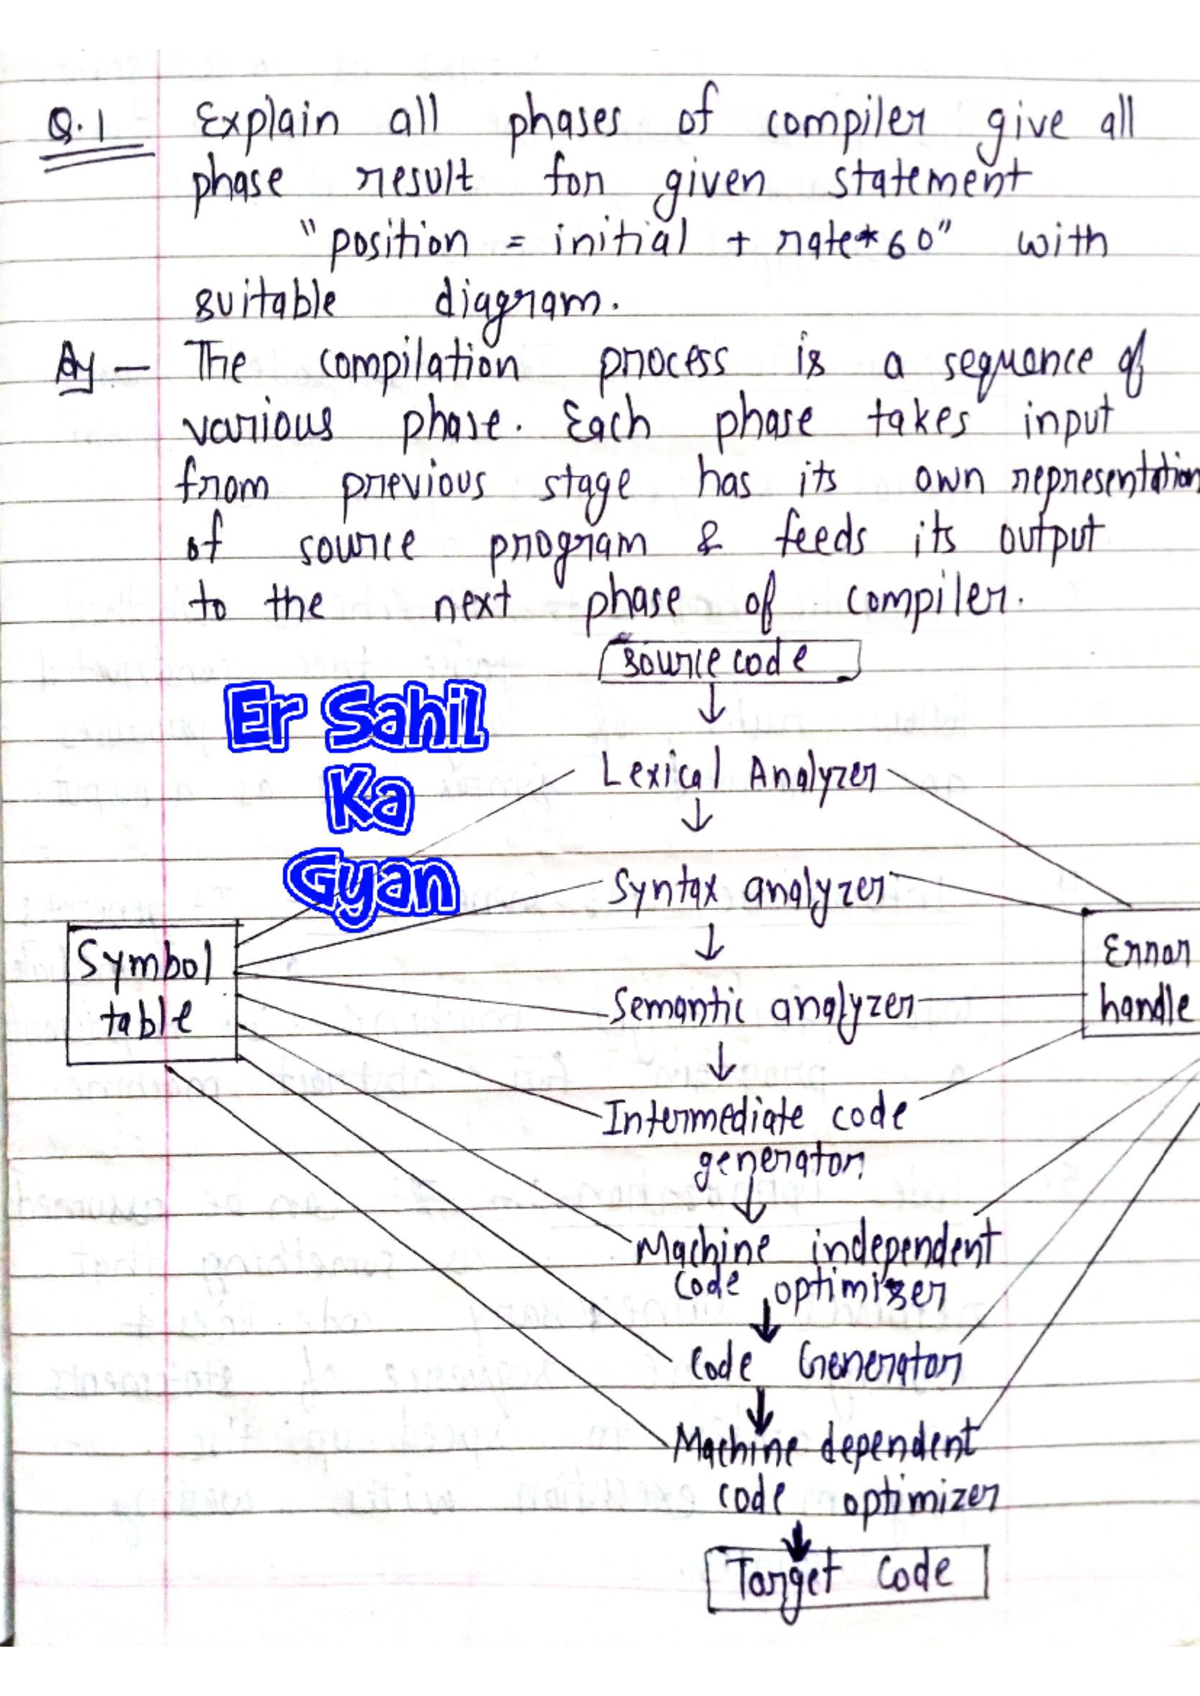 Q.1 Explain all phases of compiler give all
phase result for given statement
"position = initial + rate*60" with
suitable diagram.
The compilation process is a sequence of
various phase. Each phase takes input
from previous stage has its own representation
of source program & feeds its output
to the next phase of compiler.
source code
Er Sahil
Ka
Gyan
Lexical Analyzer
Syntax analyzer
Symbol
table
Error
handle
Semantic analyzer
Intermediate code
generator
Machine independent
code optimizer
Code Generator
Machine dependent
code optimizer
Target Code